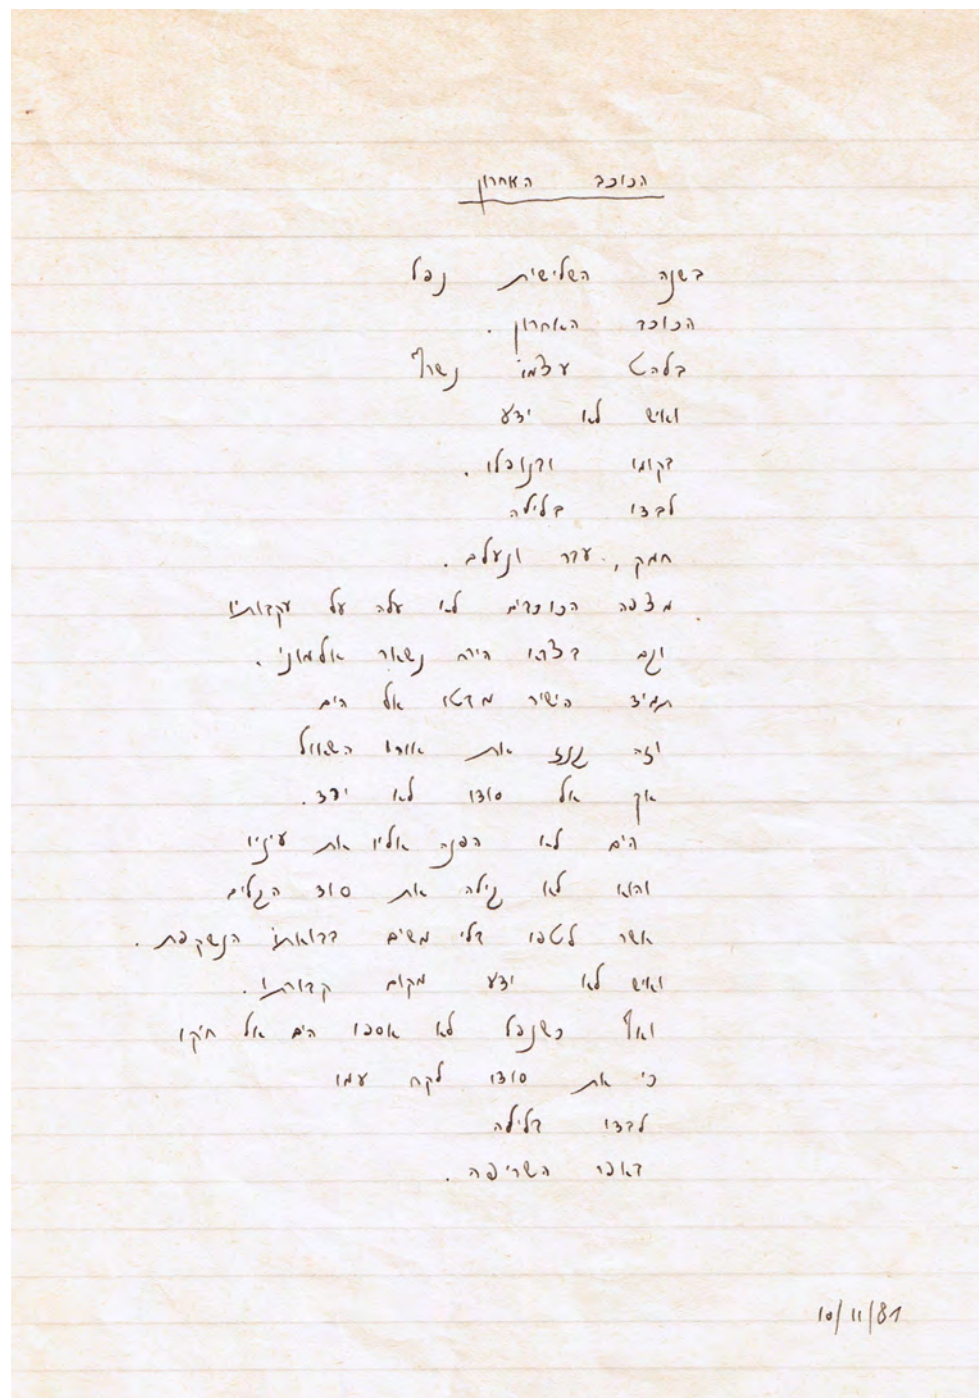 הכוכב האחרון
בשנה השלישית נפל
הכוכב האחרון.
בלהט עצמו נשרף
ואיש לא ידע
בקומו ובנופלו.
לבדו בלילה
חמק, עבר ונעלם.
מצפה הכוכבים לא עלה על עקבותיו
וגם בצבאו הירח נשאר אלמוני.
תמיד הישיר מבטו אל הים
וזה גנז את אורו השאול
אך אל סודו לא ירד.
הים לא הפנה אליו את עיניו
והוא לא גילה את סוד הגלים
אשר לטפו בלי משים בבואתו הנשקפת.
ואיש לא ידע מקום קבורתו.
ואף כשנפל לא אספו הים אל חיקו
כי את סודו לקח עמו
לבדו בלילה
באפר השריפה.
10/11/81